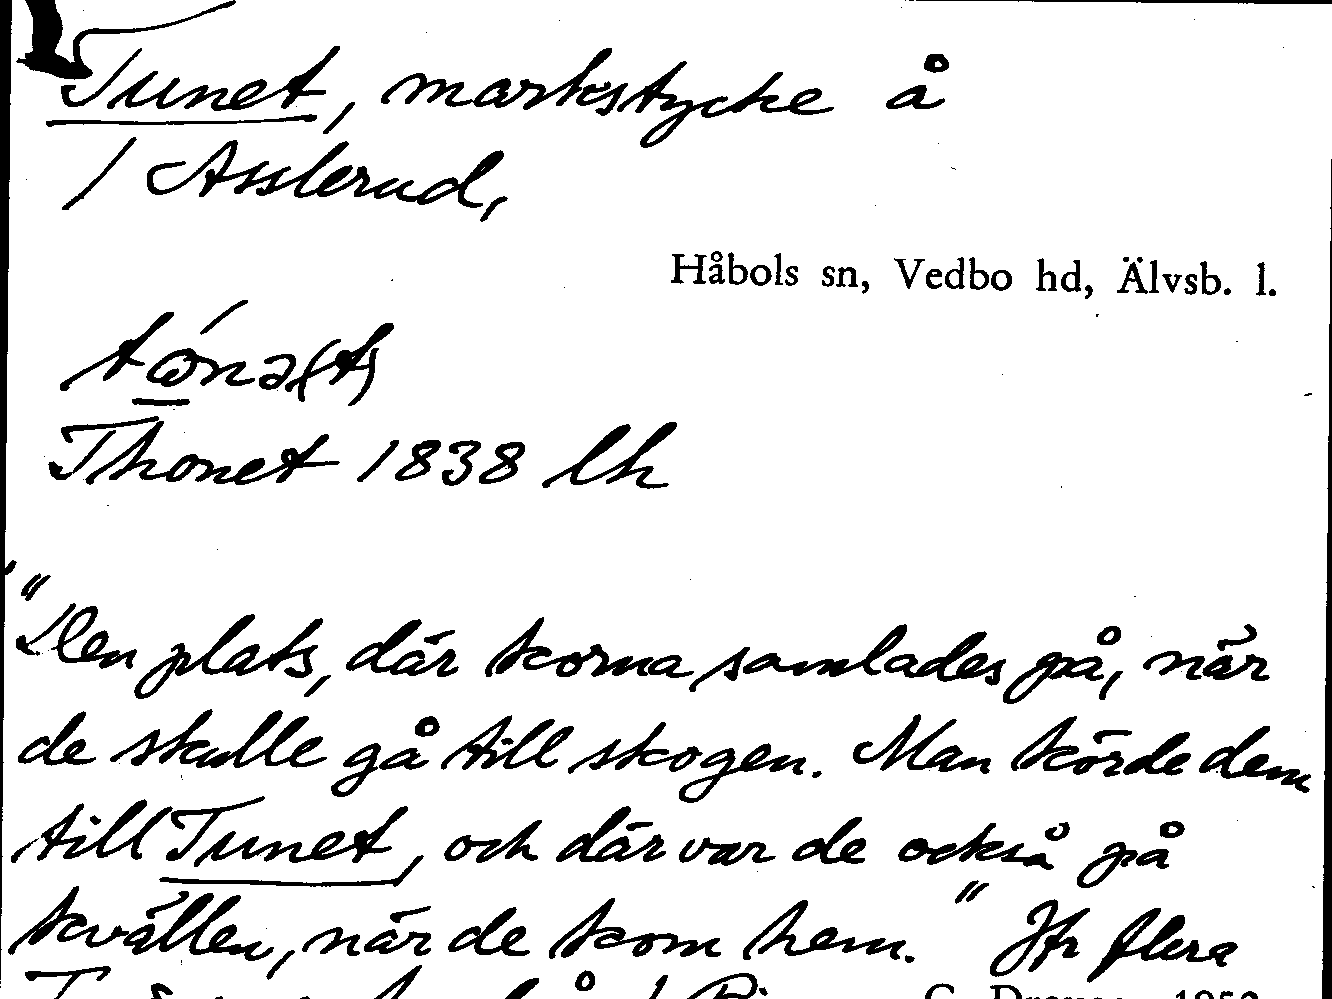 Tunet, markstycke å
/ Asslerud,
Håbols sn, Vedbo hd, Älvsb. l.
Thonet 1838 lh
"Den plats, där korna samlades på, när
de skulle gå till skogen. Man körde dem
till Tunet, och där var de också på
kvällen, när de kom hem." Jfr flera